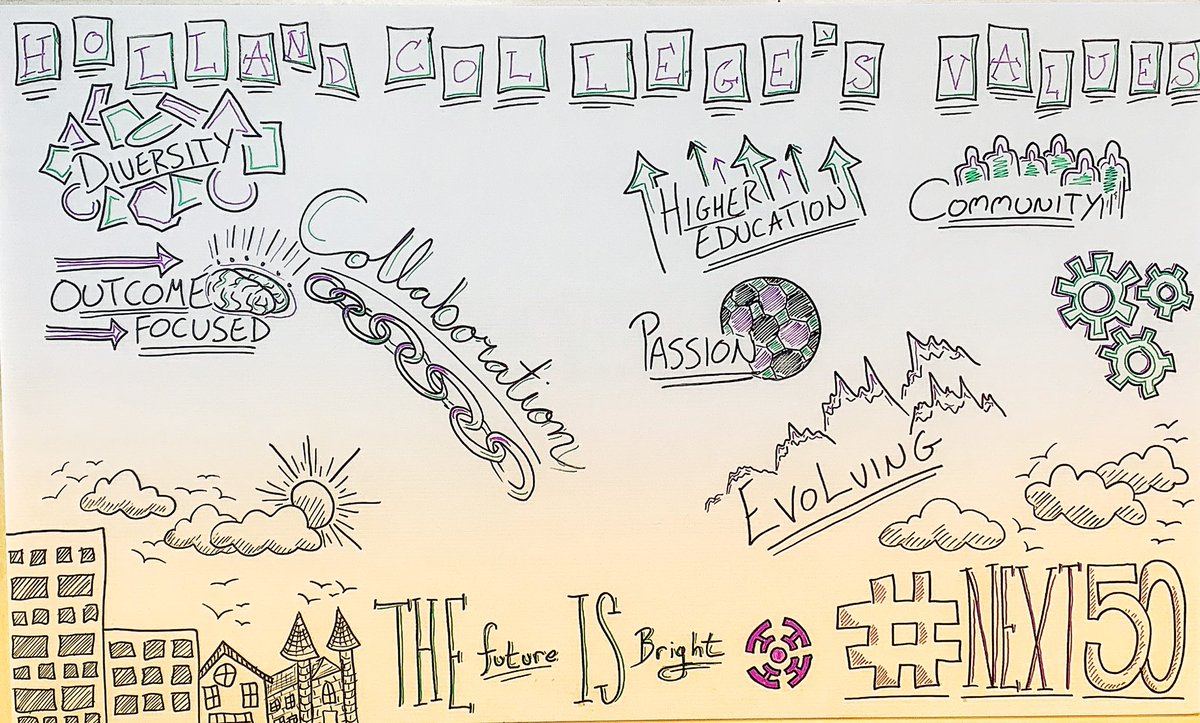 HOLLAND COLLEGE'S VALUES
DIVERSITY
HIGHER
EDUCATION
COMMUNITY
Collaboration
OUTCOME
FOCUSED
PASSION
EVOLVING
THE future IS Bright
#NEXT50